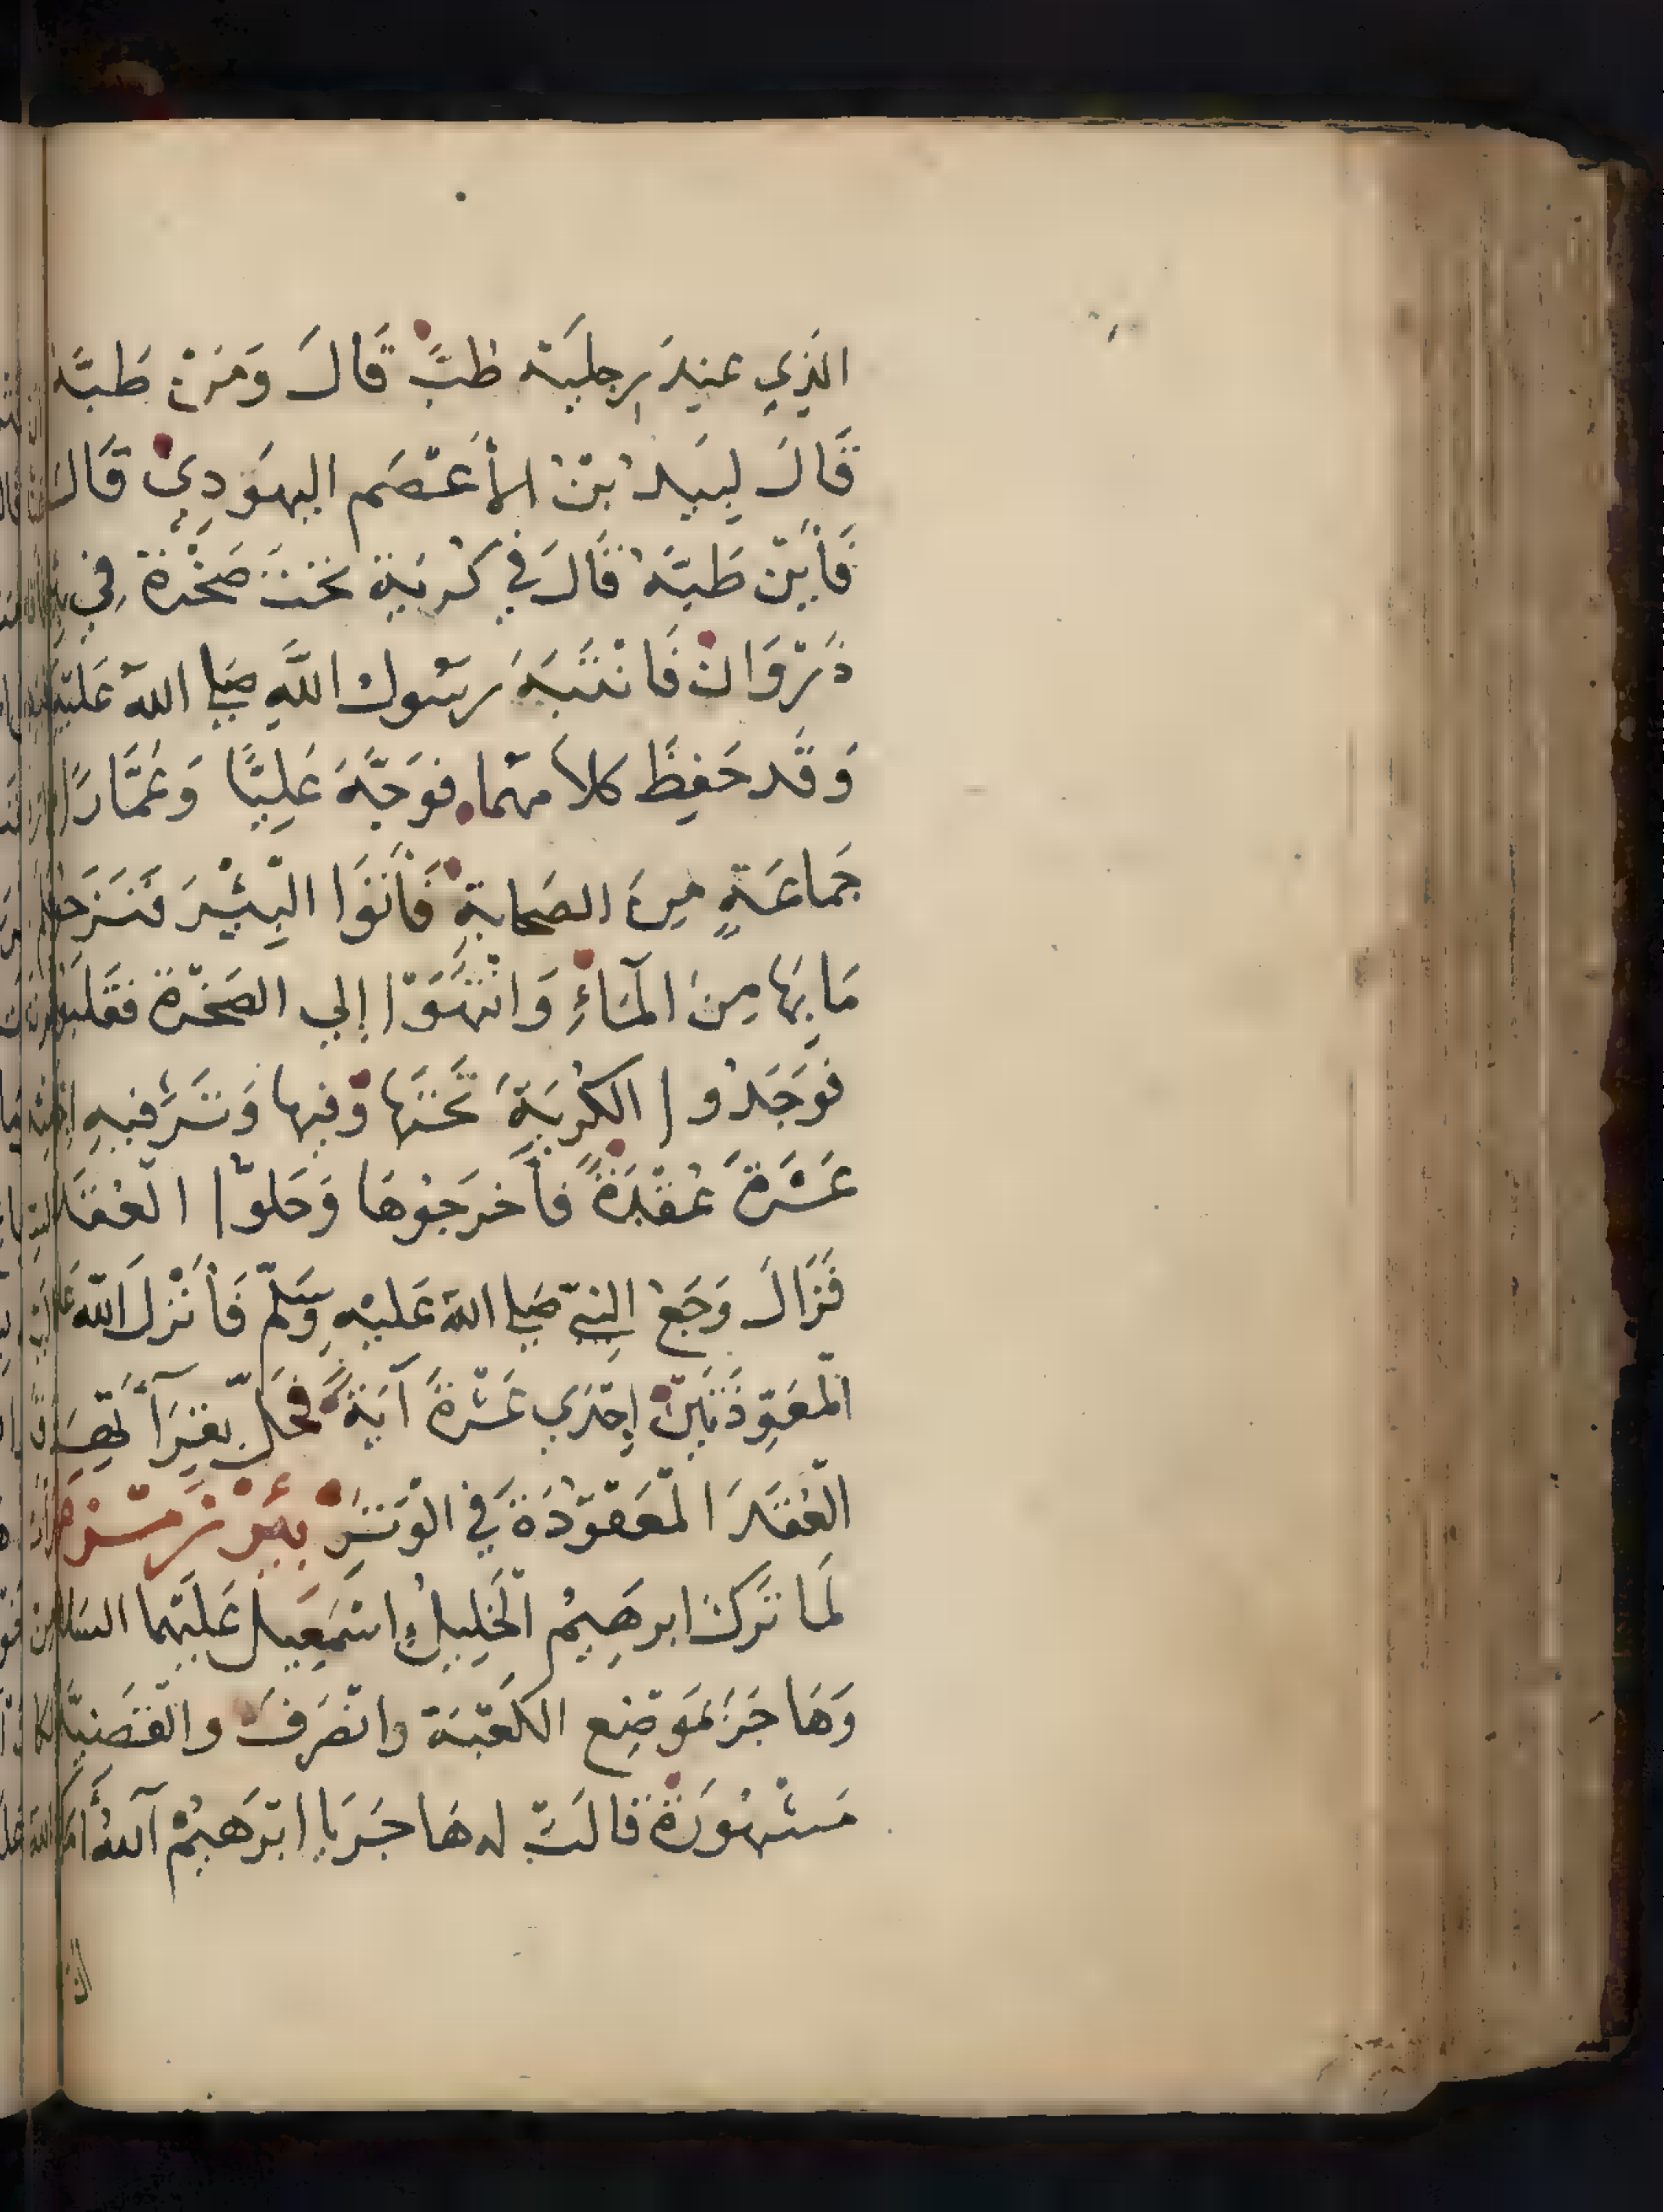 الَّذِي عِنْدَ رِجلَيْهِ طُبَّ قَالَ وَمَنْ طَبَّهُ
قَالَ لَبِيدُ بْنُ الأَعْصَمِ اليهَودِيْ قَالَ
فَأَيْنَ طَبَّهُ قَالَ فِي كُرَبَةٍ تَحْتَ صَخْرَةٍ فِي
ذَرْوَانْ فَانْتَبَهَ رَسُولُ اللَّهِ صَلى اللهُ عَلَيْهِ
وَقَد حَفِظَ كلامَهُما فَوَجَّهَ عَلِيًّا وَعَمَّارًا
جَمَاعَةٍ مِنَ الصَحابَةِ فَأَتَوَا البِئْرَ فَنَزَحُوا
مَا بِهَا مِنَ الْمَاءِ وَانْتَهَوْا إِلي الصَخْرَة فَقَلَبُو
فَوَجَدُوا الكُرَبَةَ تَحْتَهَا وَفِيها وَتَرٌ فِيهِ إِحْدَى
عَشَرَةَ عُقْدَةً فَأَخرَجُوهَا وَحَلوّا الْعُقَد
فَزَالَ وَجَعُ النبِيّ صَلى اللهُ عَلَيْهِ وَسَلّم فَأَنْزَلَ اللهُ
الْمُعَوِّذَتَيْن إِحْدَي عَشْرَةَ آيَةً فَحَلّ بِقِرَاءَتِهِ
الْعُقَدَ الْمَعَقْودَةَ فِي الْوَتَرِ بِئْرُ زَمْزَمَ
لَمَا تَرَكَ ابرهِيمُ الْخَلِيلُ إِسْمَعِيلَ عَلَيْهِما السَلام
وَهَاجَرَ بمَوْضِعِ الكَعْبَة وانْصَرَفَ والْقَصَّة
مَشْهُورَة قَالَتْ له هَاجَر يَا ابْرَهِيمُ آللهُ أَمَرَكَ